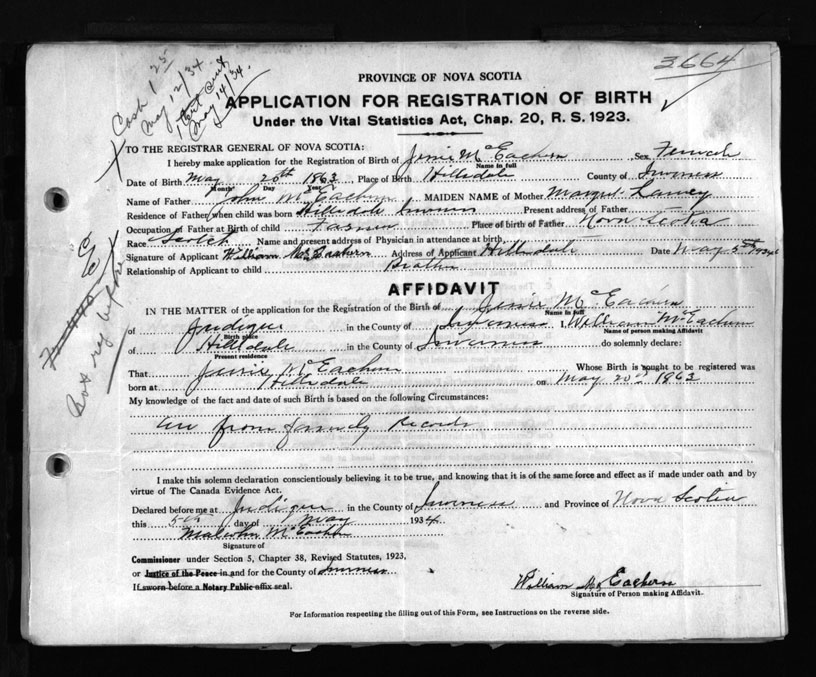 3664
Cash 1.25
May 12/34
1 Cert sent
May 14/34.
PROVINCE OF NOVA SCOTIA
APPLICATION FOR REGISTRATION OF BIRTH
Under the Vital Statistics Act, Chap. 20, R. S. 1923.
TO THE REGISTRAR GENERAL OF NOVA SCOTIA:
I hereby make application for the Registration of Birth of Jessie McEachern Sex Female
Name in full
Date of Birth May 20th 1863 Place of Birth Hillsdale County of Inverness
Month Day Year
Name of Father John McEachern MAIDEN NAME of Mother Margret
Residence of Father when child was born Hillsdale Inverness Present address of Father
Occupation of Father at Birth of child Farmer Place of birth of Father Nova Scotia
Race Scotch Name and present address of Physician in attendance at birth
Signature of Applicant William McEachern Address of Applicant Hillsdale Date May 5th 1934
Relationship of Applicant to child Brother
AFFIDAVIT
IN THE MATTER of the application for the Registration of the Birth of Jessie McEachern
Name in full
of Judique in the County of Inverness I, William McEachern
Birth place Name of person making Affidavit
of Hillsdale in the County of Inverness do solemnly declare:
Present residence
That Jessie McEachern Whose Birth is sought to be registered was
born at Hillsdale on May 20th 1863
My knowledge of the fact and date of such Birth is based on the following Circumstances:
from family Records
I make this solemn declaration conscientiously believing it to be true, and knowing that it is of the same force and effect as if made under oath and by
virtue of The Canada Evidence Act.
Declared before me at Judique in the County of Inverness and Province of Nova Scotia
this 5th day of May 1934
Malcolm McEachern
Signature of
Commissioner under Section 5, Chapter 38, Revised Statutes, 1923,
or Justice of the Peace in and for the County of Inverness
If sworn before a Notary Public affix seal.
William McEachern
Signature of Person making Affidavit.
For Information respecting the filling out of this Form, see Instructions on the reverse side.
E
Not reg before